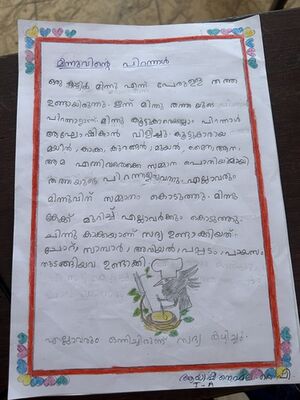 മിന്നുവിന്റെ പിറന്നാൾ
ഒരു മിന്നു എന്ന് പേരുള്ള തത്ത
ഉണ്ടായിരുന്നു. ഇന്ന് മിന്നു തത്തയുടെ
പിറന്നാളാണ്. മിന്നു കൂട്ടുകാരെയെല്ലാം പിറന്നാൾ
ആഘോഷിക്കാൻ വിളിച്ചു. കൂട്ടുകാരായ
മയിൽ, കാക്ക, കുറുക്കൻ, മുയൽ, ആന,
ആമ എന്നിവരൊക്കെ സമ്മാന പൊതിയുമായി
എല്ലാവരും
മിന്നുവിന് സമ്മാനം കൊടുത്തു. മിന്നു
കേക്ക് മുറിച്ച് എല്ലാവർക്കും കൊടുത്തു.
ചിന്നു കാക്കയാണ് സദ്യ ഉണ്ടാക്കിയത്.
ചോറ്, സാമ്പാർ, അവിയൽ, പപ്പടം, പായസം
തുടങ്ങിയവ ഉണ്ടാക്കി.
എല്ലാവരും ഒന്നിച്ചിരുന്ന് സദ്യ കഴിച്ചു.
I-A